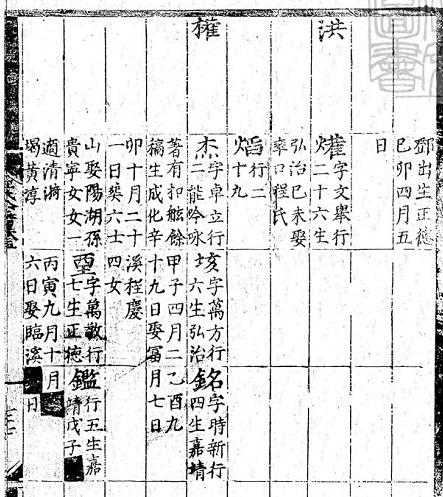 洪
鄧出生正德
巳卯四月五
日
爟字文舉行
二十六生
弘治巳未娶
率口程氏
熖行二
十九
杰字卓立行
二能吟咏
著有扣舷餘
稿生成化辛
卯十月二十
一日葵六士
山娶陽湖孫
貴寧女女一
適清漪
黃淳
垓字萬方行
六生弘治
甲子四月二
十九日娶冨
溪程慶
四女
字萬敵行
七生正德
丙寅九月十
六日娶臨溪
銘字時新行
四生嘉靖
乙酉九
月七日
鑑行五生嘉
靖戊子
月
日